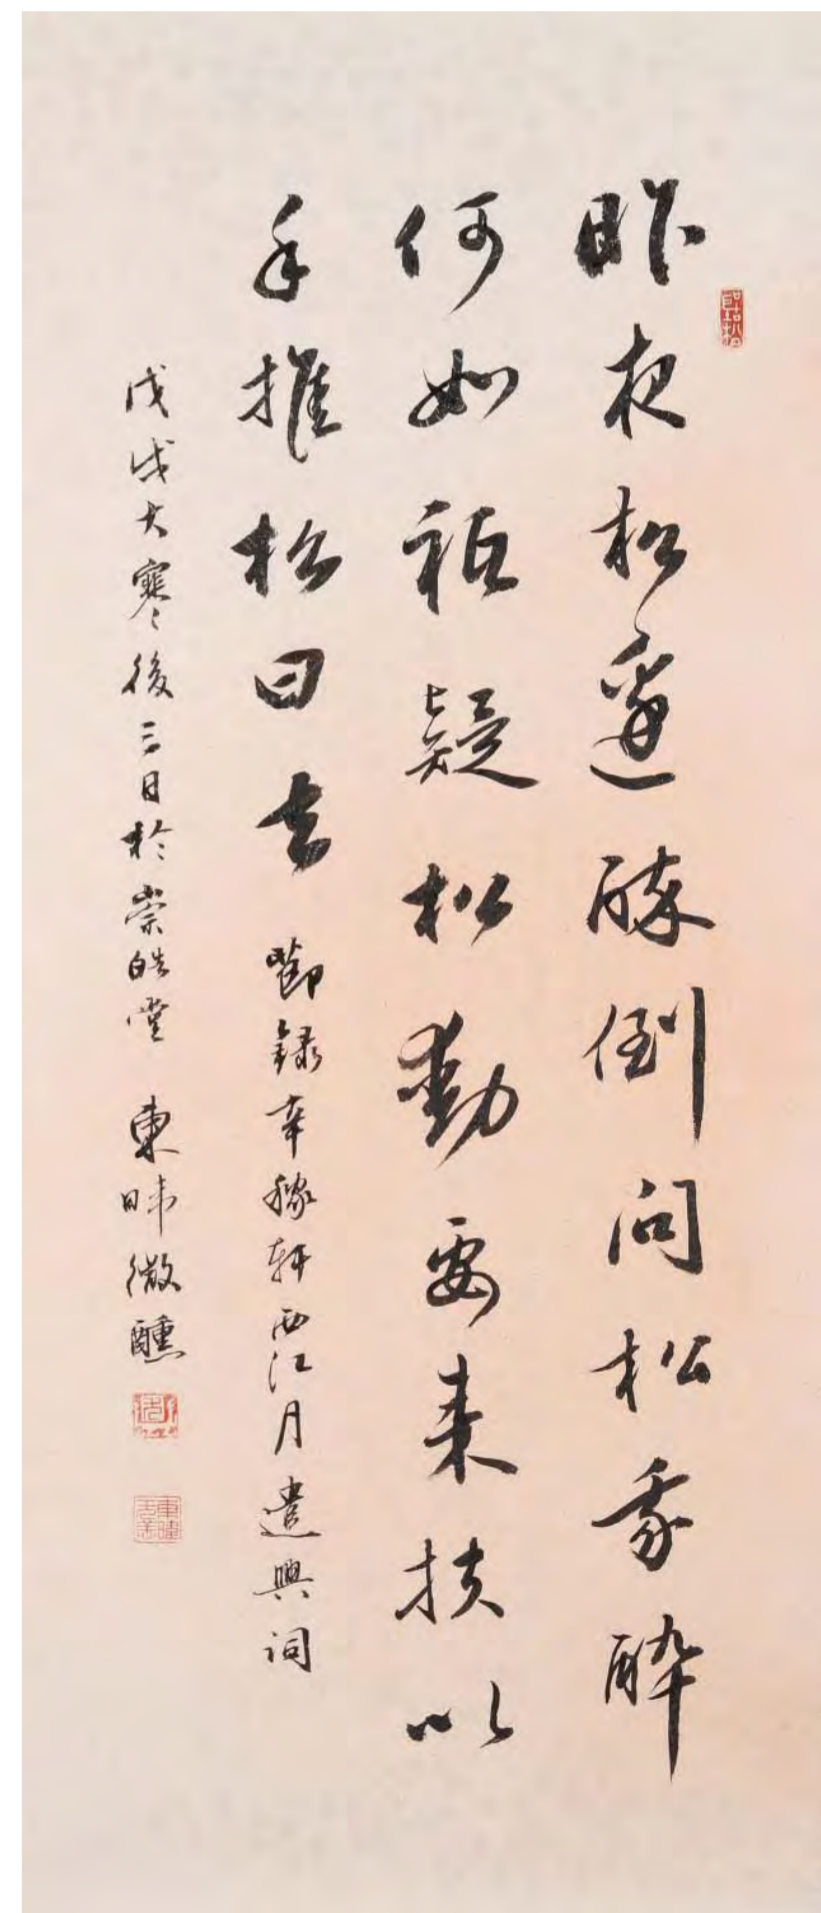 昨夜松邊醉倒問松我醉
何如祗疑松動要來扶以
手推松曰去 節錄辛稼軒西江月遣興詞
戊戌大寒後三日於崇皓堂 東暐微醺